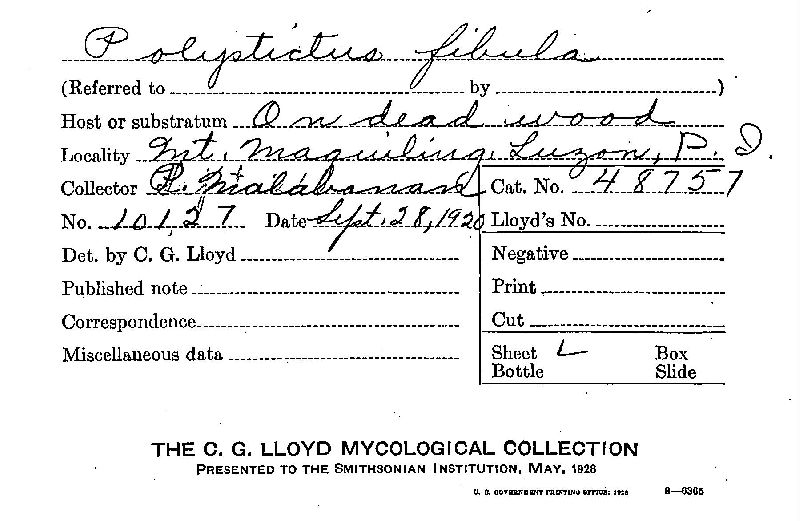 Polystictus fibula
(Referred to by )
Host or substratum On dead wood
Locality Mt. Maquiling, Luzon, P. I.
Collector P. Malabanan Cat. No. 48757
No. 10127 Date Sept. 28, 1920 Lloyd's No.
Det. by C. G. Lloyd Negative
Published note Print
Correspondence Cut
Miscellaneous data Sheet Box
Bottle Slide
THE C. G. LLOYD MYCOLOGICAL COLLECTION
PRESENTED TO THE SMITHSONIAN INSTITUTION, MAY, 1928
U. S. GOVERNMENT PRINTING OFFICE: 1928 8—6365